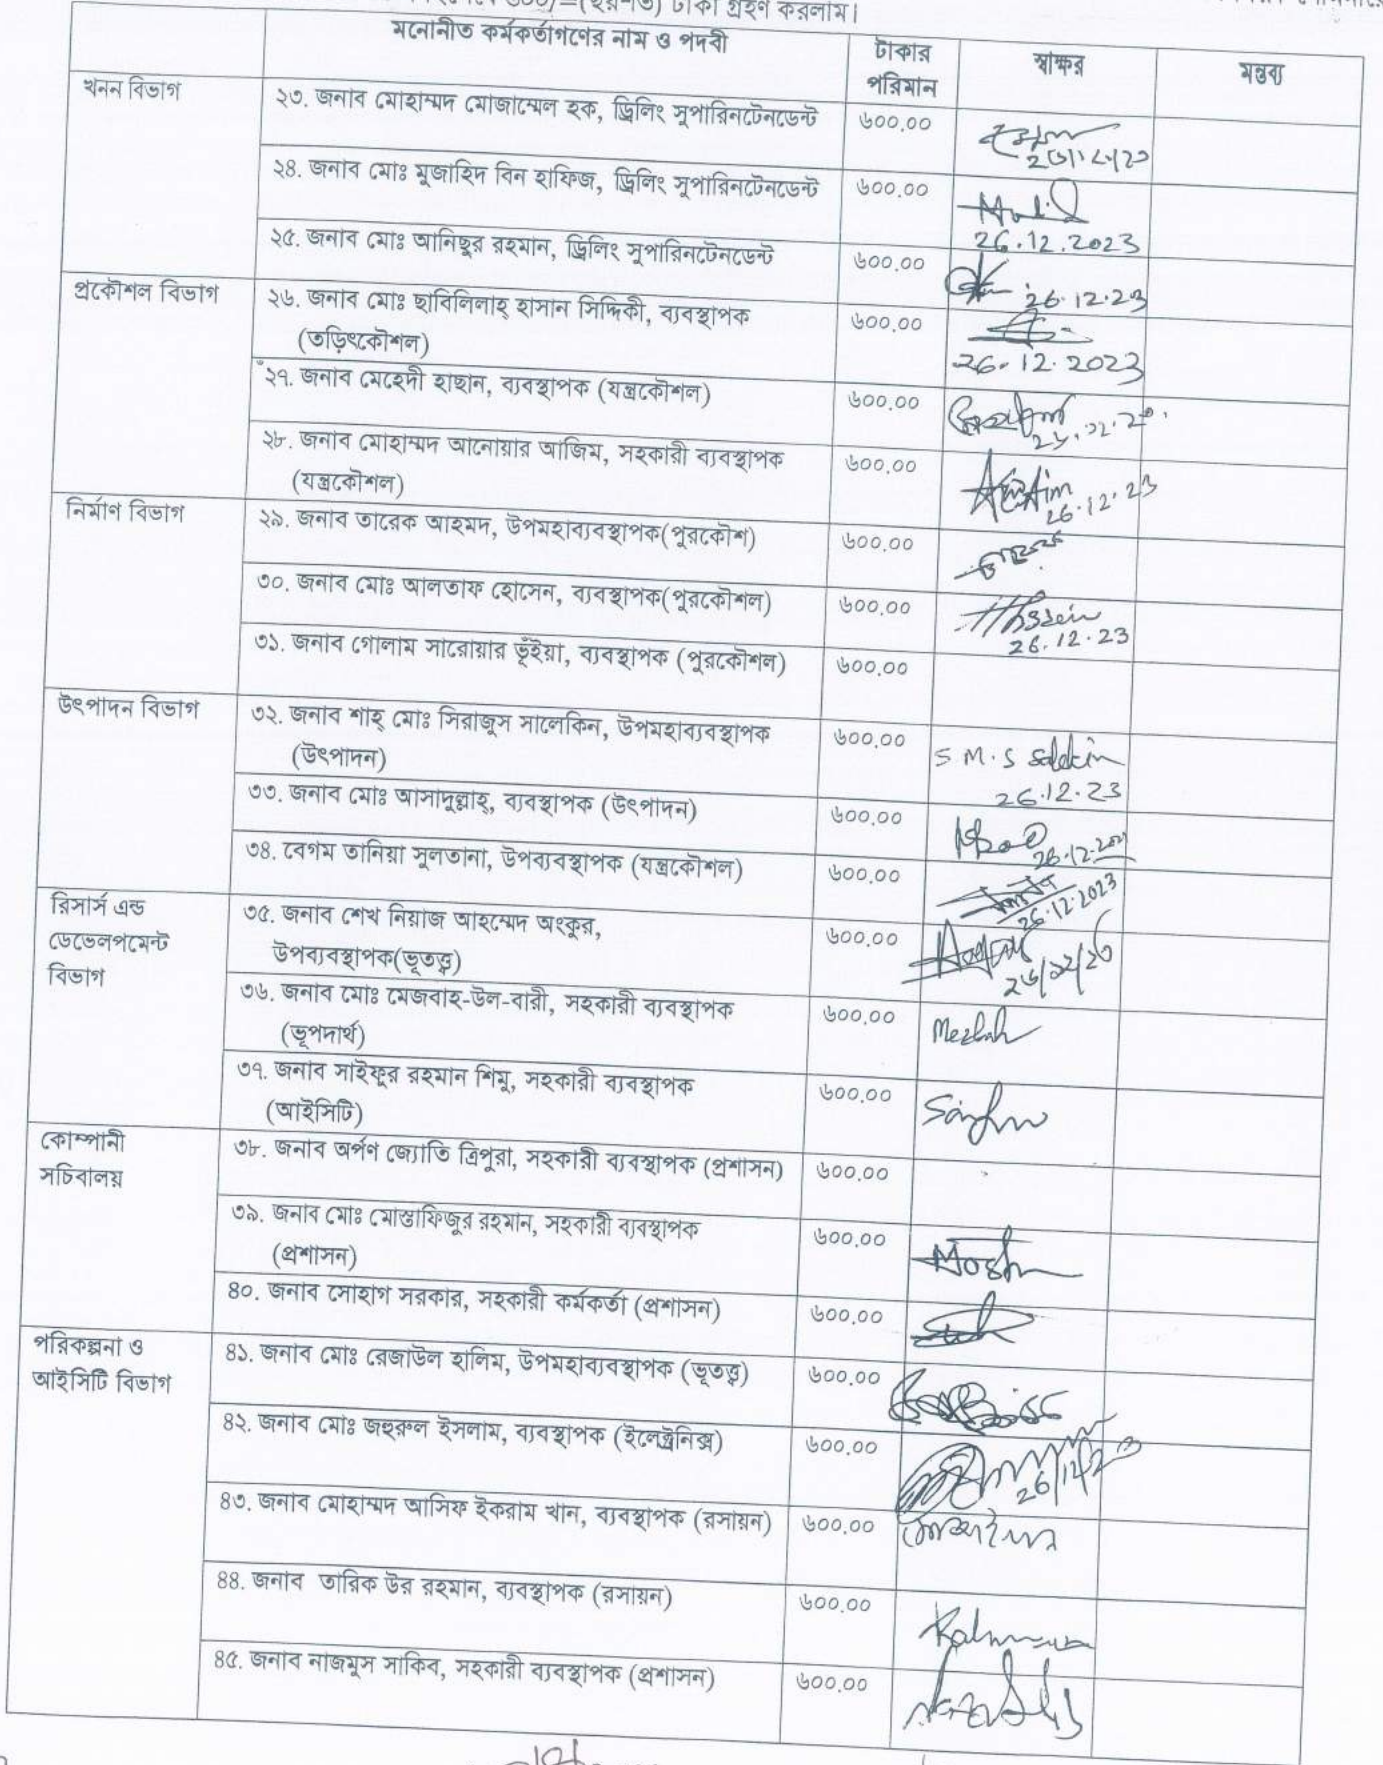 ৬০০/=(ছয়শত) টাকা গ্রহণ করলাম।
মনোনীত কর্মকর্তাগণের নাম ও পদবী
টাকার পরিমান
স্বাক্ষর
মন্তব্য
খনন বিভাগ
২৩. জনাব মোহাম্মদ মোজাম্মেল হক, ড্রিলিং সুপারিনটেনডেন্ট ৬০০.০০
২৪. জনাব মোঃ মুজাহিদ বিন হাফিজ, ড্রিলিং সুপারিনটেনডেন্ট ৬০০.০০
26.12.2023
২৫. জনাব মোঃ আনিছুর রহমান, ড্রিলিং সুপারিনটেনডেন্ট ৬০০.০০
26.12.23
প্রকৌশল বিভাগ
২৬. জনাব মোঃ ছাবিলিলাহ্ হাসান সিদ্দিকী, ব্যবস্থাপক ৬০০.০০
(তড়িৎকৌশল)
26.12.2023
২৭. জনাব মেহেদী হাছান, ব্যবস্থাপক (যন্ত্রকৌশল) ৬০০.০০
২৮. জনাব মোহাম্মদ আনোয়ার আজিম, সহকারী ব্যবস্থাপক ৬০০.০০
(যন্ত্রকৌশল)
26.12.23
নির্মাণ বিভাগ
২৯. জনাব তারেক আহমদ, উপমহাব্যবস্থাপক(পুরকৌশ) ৬০০.০০
৩০. জনাব মোঃ আলতাফ হোসেন, ব্যবস্থাপক(পুরকৌশল) ৬০০.০০
Hossein
26.12.23
৩১. জনাব গোলাম সারোয়ার ভূঁইয়া, ব্যবস্থাপক (পুরকৌশল) ৬০০.০০
উৎপাদন বিভাগ
৩২. জনাব শাহ্ মোঃ সিরাজুস সালেকিন, উপমহাব্যবস্থাপক ৬০০.০০
(উৎপাদন)
S.M.S Salekin
26.12.23
৩৩. জনাব মোঃ আসাদুল্লাহ্, ব্যবস্থাপক (উৎপাদন) ৬০০.০০
৩৪. বেগম তানিয়া সুলতানা, উপব্যবস্থাপক (যন্ত্রকৌশল) ৬০০.০০
26.12.2023
রিসার্স এন্ড
ডেভেলপমেন্ট
বিভাগ
৩৫. জনাব শেখ নিয়াজ আহম্মেদ অংকুর, ৬০০.০০
উপব্যবস্থাপক(ভূতত্ত্ব)
৩৬. জনাব মোঃ মেজবাহ-উল-বারী, সহকারী ব্যবস্থাপক ৬০০.০০
(ভূপদার্থ)
Mezbah
৩৭. জনাব সাইফুর রহমান শিমু, সহকারী ব্যবস্থাপক ৬০০.০০
(আইসিটি)
কোম্পানী
সচিবালয়
৩৮. জনাব অর্পণ জ্যোতি ত্রিপুরা, সহকারী ব্যবস্থাপক (প্রশাসন) ৬০০.০০
৩৯. জনাব মোঃ মোস্তাফিজুর রহমান, সহকারী ব্যবস্থাপক ৬০০.০০
(প্রশাসন)
৪০. জনাব সোহাগ সরকার, সহকারী কর্মকর্তা (প্রশাসন) ৬০০.০০
পরিকল্পনা ও
আইসিটি বিভাগ
৪১. জনাব মোঃ রেজাউল হালিম, উপমহাব্যবস্থাপক (ভূতত্ত্ব) ৬০০.০০
৪২. জনাব মোঃ জহুরুল ইসলাম, ব্যবস্থাপক (ইলেক্ট্রনিক্স) ৬০০.০০
26/12/23
৪৩. জনাব মোহাম্মদ আসিফ ইকরাম খান, ব্যবস্থাপক (রসায়ন) ৬০০.০০
৪৪. জনাব তারিক উর রহমান, ব্যবস্থাপক (রসায়ন) ৬০০.০০
৪৫. জনাব নাজমুস সাকিব, সহকারী ব্যবস্থাপক (প্রশাসন) ৬০০.০০